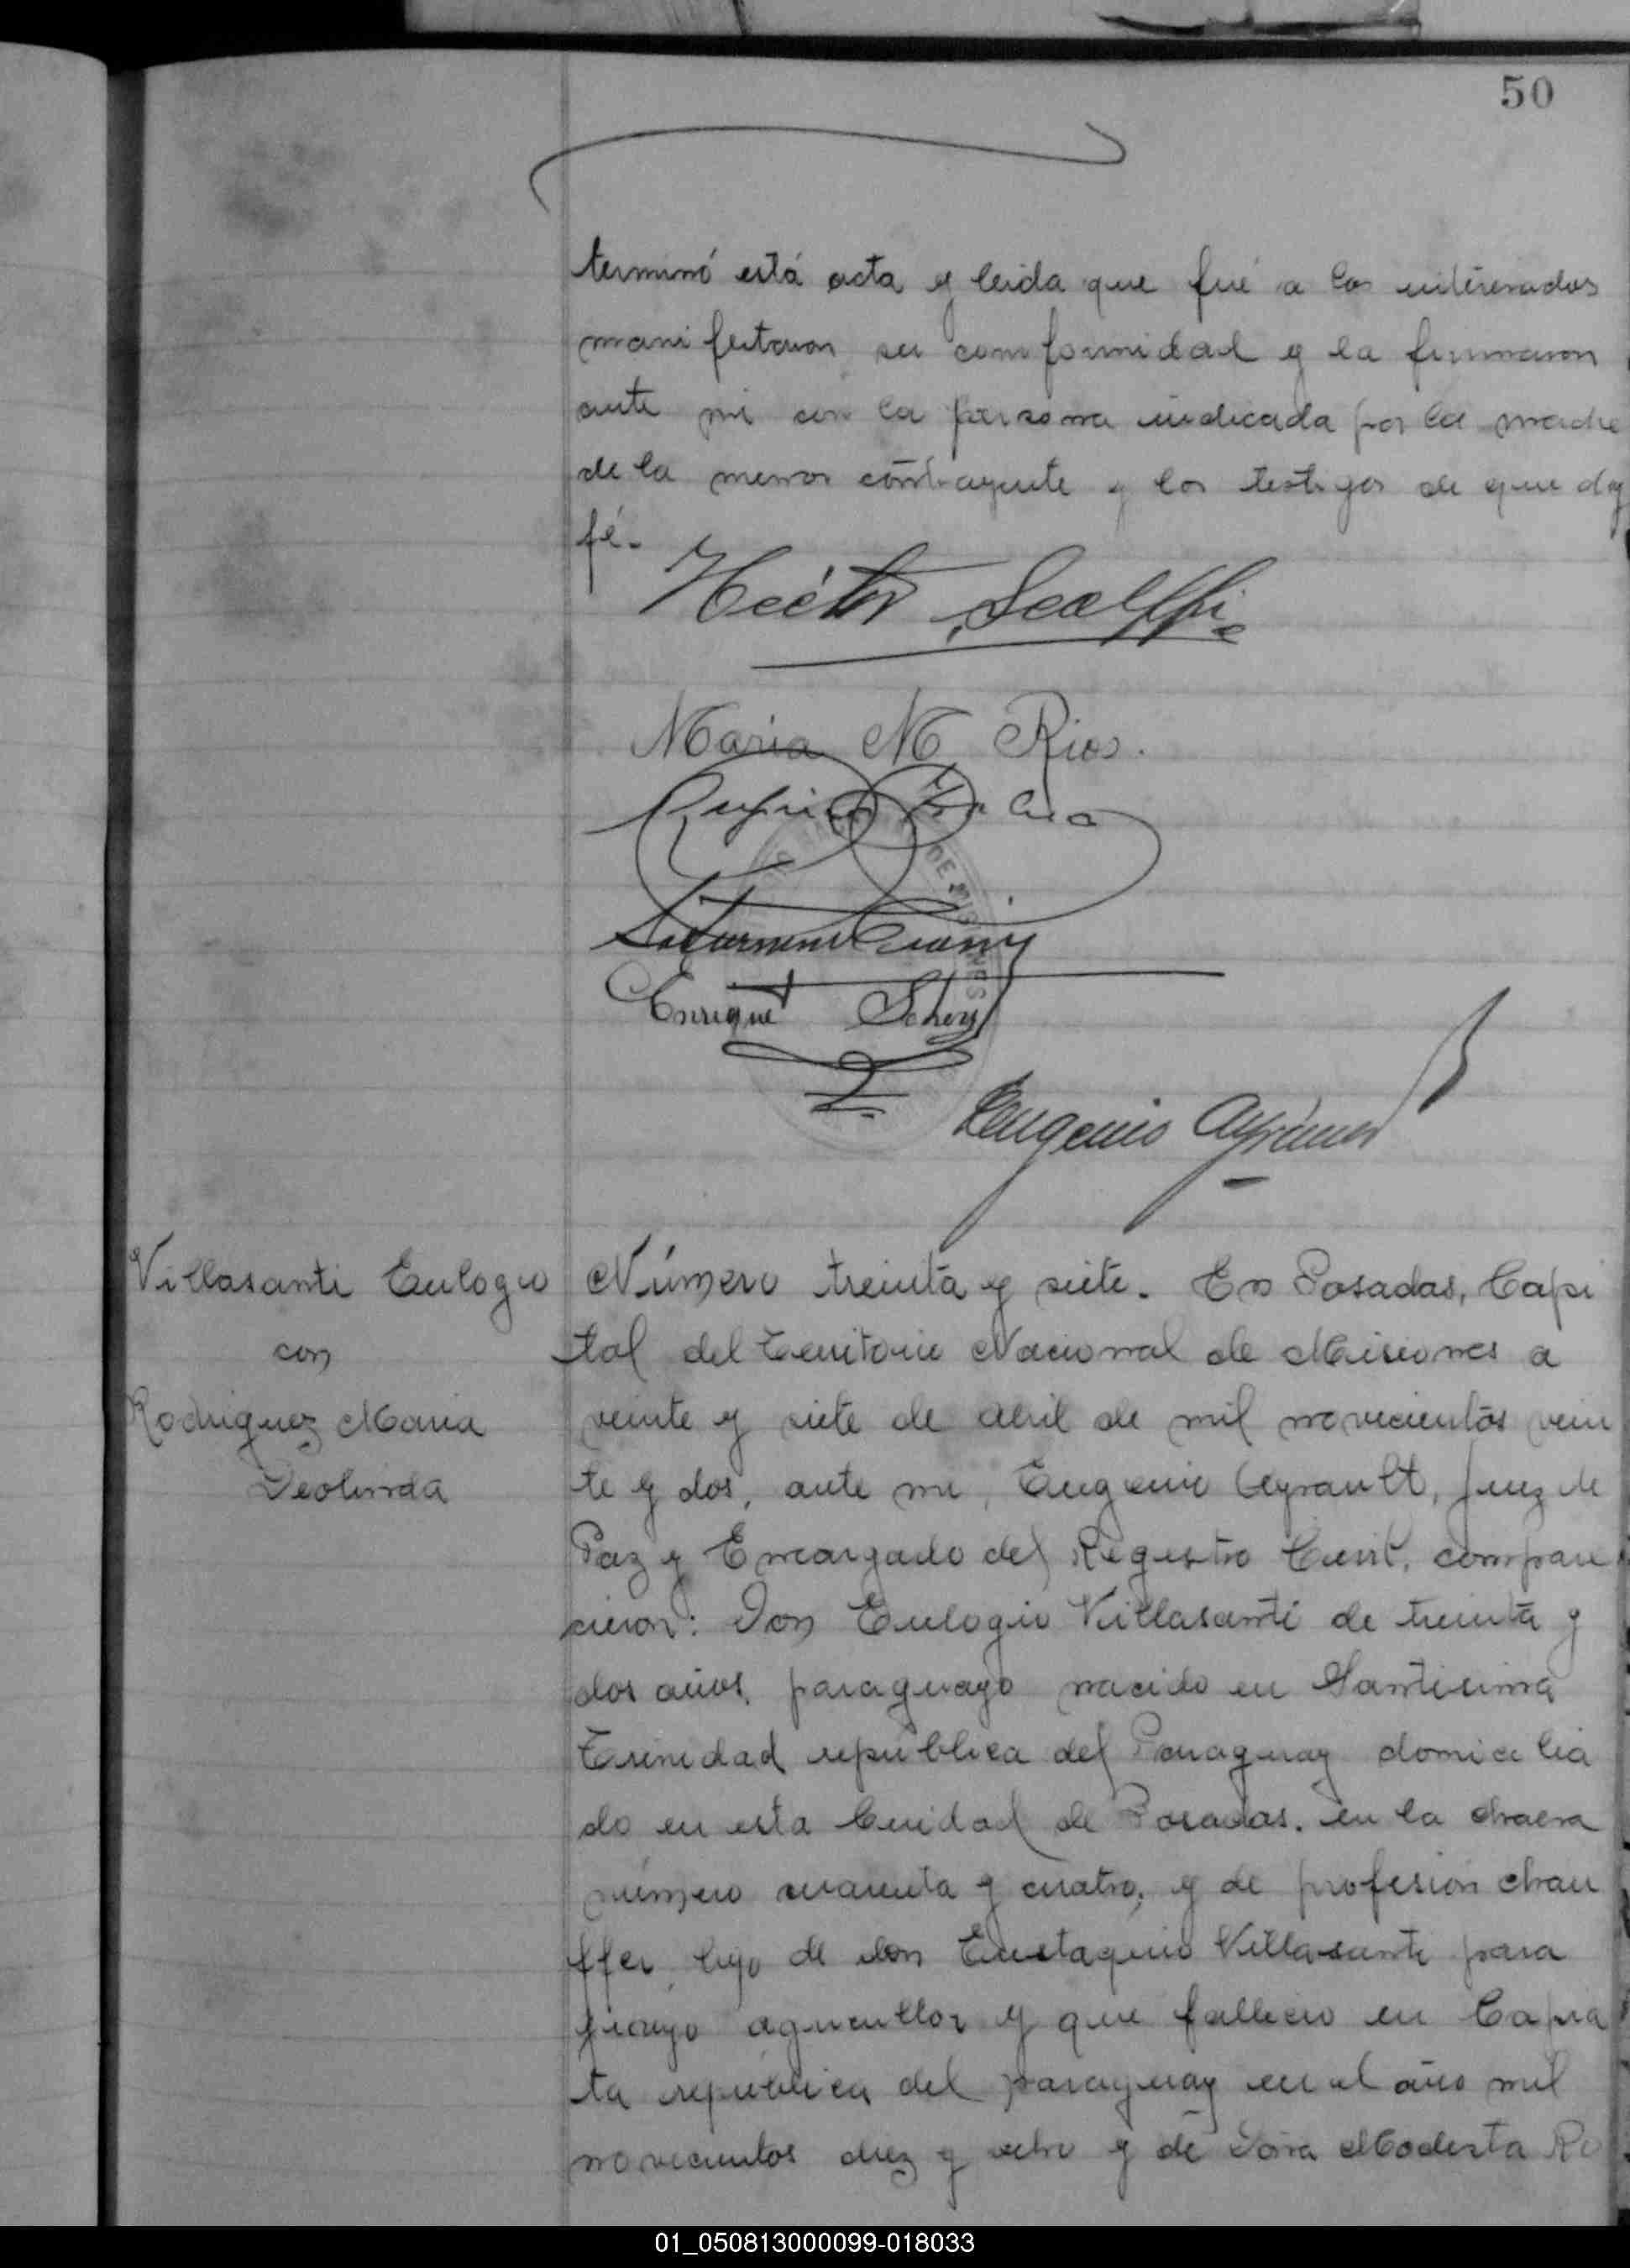 50
terminó está acta y leida que fué a los interesados
manifestaron su conformidad y la firmaron
ante mi con la persona indicada por la madre
de la menor contrayente y los testigos de que doy
fé.
Héctor Scalffi
Maria M Rios.
Rufino
DE MISIONES
Saturnino
Enrique
Eugenio Ayrault
Villasanti Eulogio
con
Rodriguez Maria
Deolinda
Número treinta y siete. En Posadas, Capi
tal del Territorio Nacional de Misiones a
veinte y siete de abril de mil novecientos vein
te y dos, ante mi, Eugenio Ayrault, Juez de
Paz y Encargado del Registro Civil, compare
cieron: Don Eulogio Villasanti de treinta y
dos años, paraguayo nacido en Santisima
Trinidad república del Paraguay domicilia
do en esta Ciudad de Posadas. en la chacra
número cuarenta y cuatro, y de profesión chau
ffer, hijo de don Eustaquio Villasanti para
guayo agricultor y que fallecio en Capia
ta república del paraguay en el año mil
novecientos diez y ocho y de Doña Modesta Ro
01_050813000099-018033